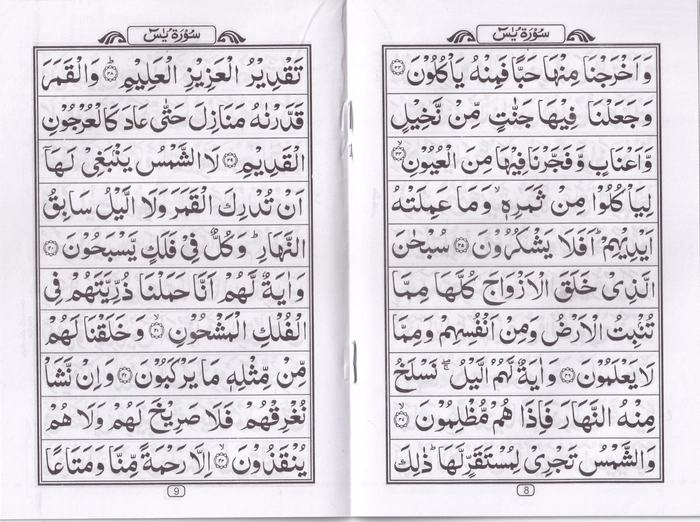 سُوْرَة يٰسٓ
وَاَخْرَجْنَا مِنْهَا حَبًّا فَمِنْهُ يَاْكُلُوْنَ ﴿۳۳﴾
وَجَعَلْنَا فِيْهَا جَنّٰتٍ مِّنْ نَّخِيْلٍ
وَّاَعْنَابٍ وَّفَجَّرْنَا فِيْهَا مِنَ الْعُيُوْنِ ﴿۳۴﴾ۙ
لِيَاْكُلُوْا مِنْ ثَمَرِهٖ ۙ وَمَا عَمِلَتْهُ
اَيْدِيْهِمْ ؕ اَفَلَا يَشْكُرُوْنَ ﴿۳۵﴾ سُبْحٰنَ
الَّذِىْ خَلَقَ الْاَزْوَاجَ كُلَّهَا مِمَّا
تُنْۢبِتُ الْاَرْضُ وَمِنْ اَنْفُسِهِمْ وَمِمَّا
لَا يَعْلَمُوْنَ ﴿۳۶﴾ وَاٰيَةٌ لَّهُمُ الَّيْلُ ۖۚ نَسْلَخُ
مِنْهُ النَّهَارَ فَاِذَا هُمْ مُّظْلِمُوْنَ ﴿۳۷﴾ۙ
وَالشَّمْسُ تَجْرِىْ لِمُسْتَقَرٍّ لَّهَا ؕ ذٰلِكَ
8
سُوْرَة يٰسٓ
تَقْدِيْرُ الْعَزِيْزِ الْعَلِيْمِ ﴿۳۸﴾ؕ وَالْقَمَرَ
قَدَّرْنٰهُ مَنَازِلَ حَتّٰى عَادَ كَالْعُرْجُوْنِ
الْقَدِيْمِ ﴿۳۹﴾ لَا الشَّمْسُ يَنْۢبَغِىْ لَهَاۤ
اَنْ تُدْرِكَ الْقَمَرَ وَلَا الَّيْلُ سَابِقُ
النَّهَارِ ؕ وَكُلٌّ فِىْ فَلَكٍ يَّسْبَحُوْنَ ﴿۴۰﴾
وَاٰيَةٌ لَّهُمْ اَنَّا حَمَلْنَا ذُرِّيَّتَهُمْ فِى
الْفُلْكِ الْمَشْحُوْنِ ﴿۴۱﴾ۙ وَخَلَقْنَا لَهُمْ
مِّنْ مِّثْلِهٖ مَا يَرْكَبُوْنَ ﴿۴۲﴾ وَاِنْ نَّشَاْ
نُغْرِقْهُمْ فَلَا صَرِيْخَ لَهُمْ وَلَا هُمْ
يُنْقَذُوْنَ ﴿۴۳﴾ۙ اِلَّا رَحْمَةً مِّنَّا وَمَتَاعًا
9